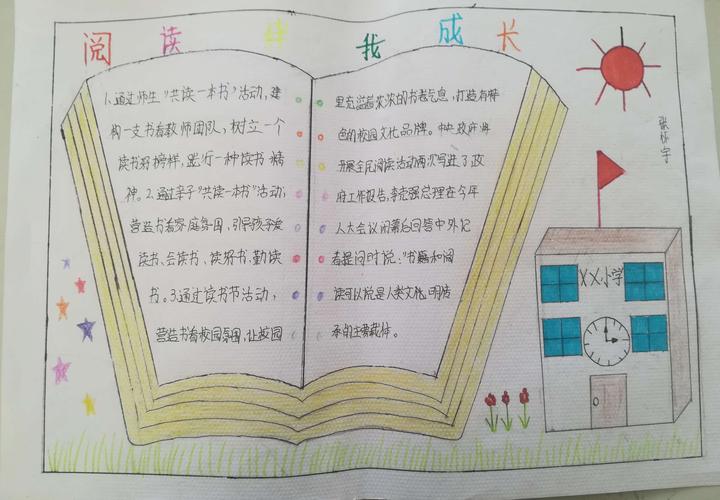 阅读伴我成长
1.通过师生“共读一本书”活动,建
构一支书香教师团队,树立一个
读书好榜样,践行一种读书精
神。2.通过亲子“共读一本书”活动,
营造书香家庭氛围,引导孩子爱
读书、会读书、读好书、勤读
书。3.通过读书节活动,
营造书香校园氛围,让校园
里充溢着浓浓的书香气息,打造有特
色的校园文化品牌。中央政府将
开展全民阅读活动两次写进了政
府工作报告,李克强总理在今年
人大会议闭幕后回答中外记
者提问时说:“书籍和阅
读可以说是人类文化明传
承的主要载体。
张怀宇
XX小学